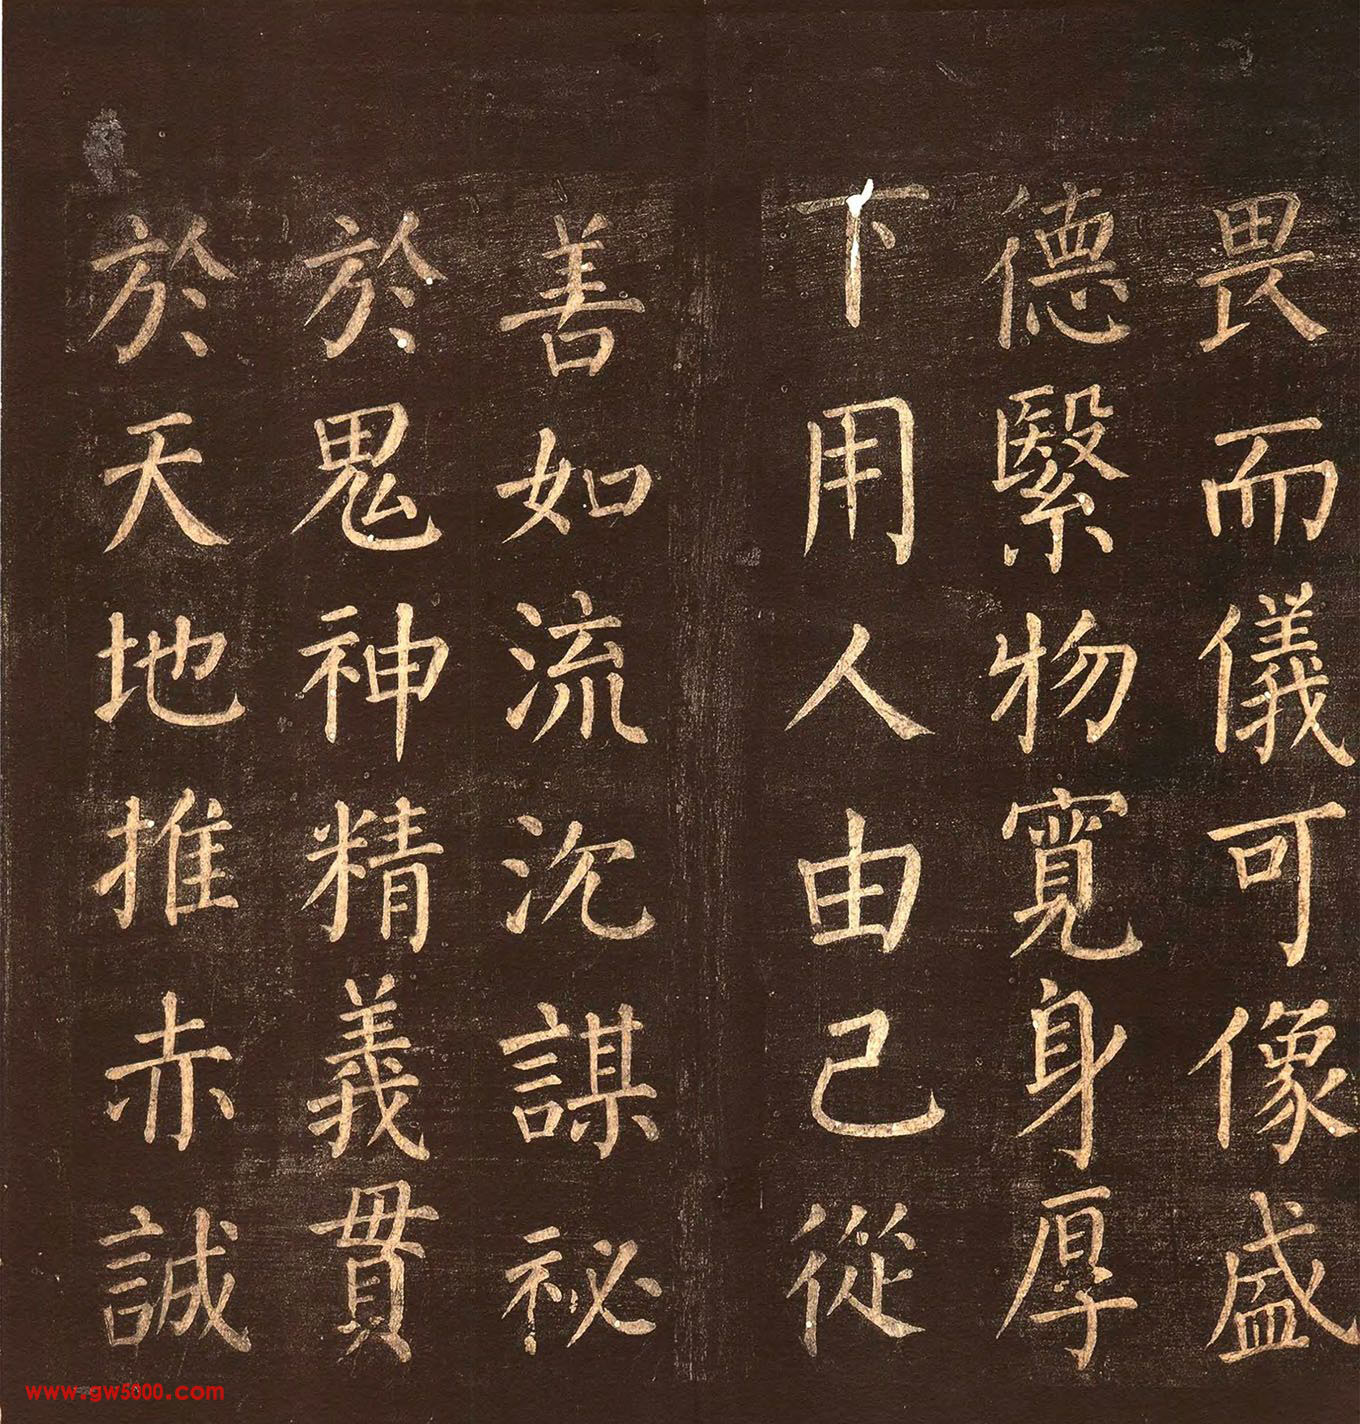 畏而儀可像盛
德繄物寬身厚
下用人由己從
善如流沉謀祕
於鬼神精義貫
於天地推赤誠
www.gw5000.com